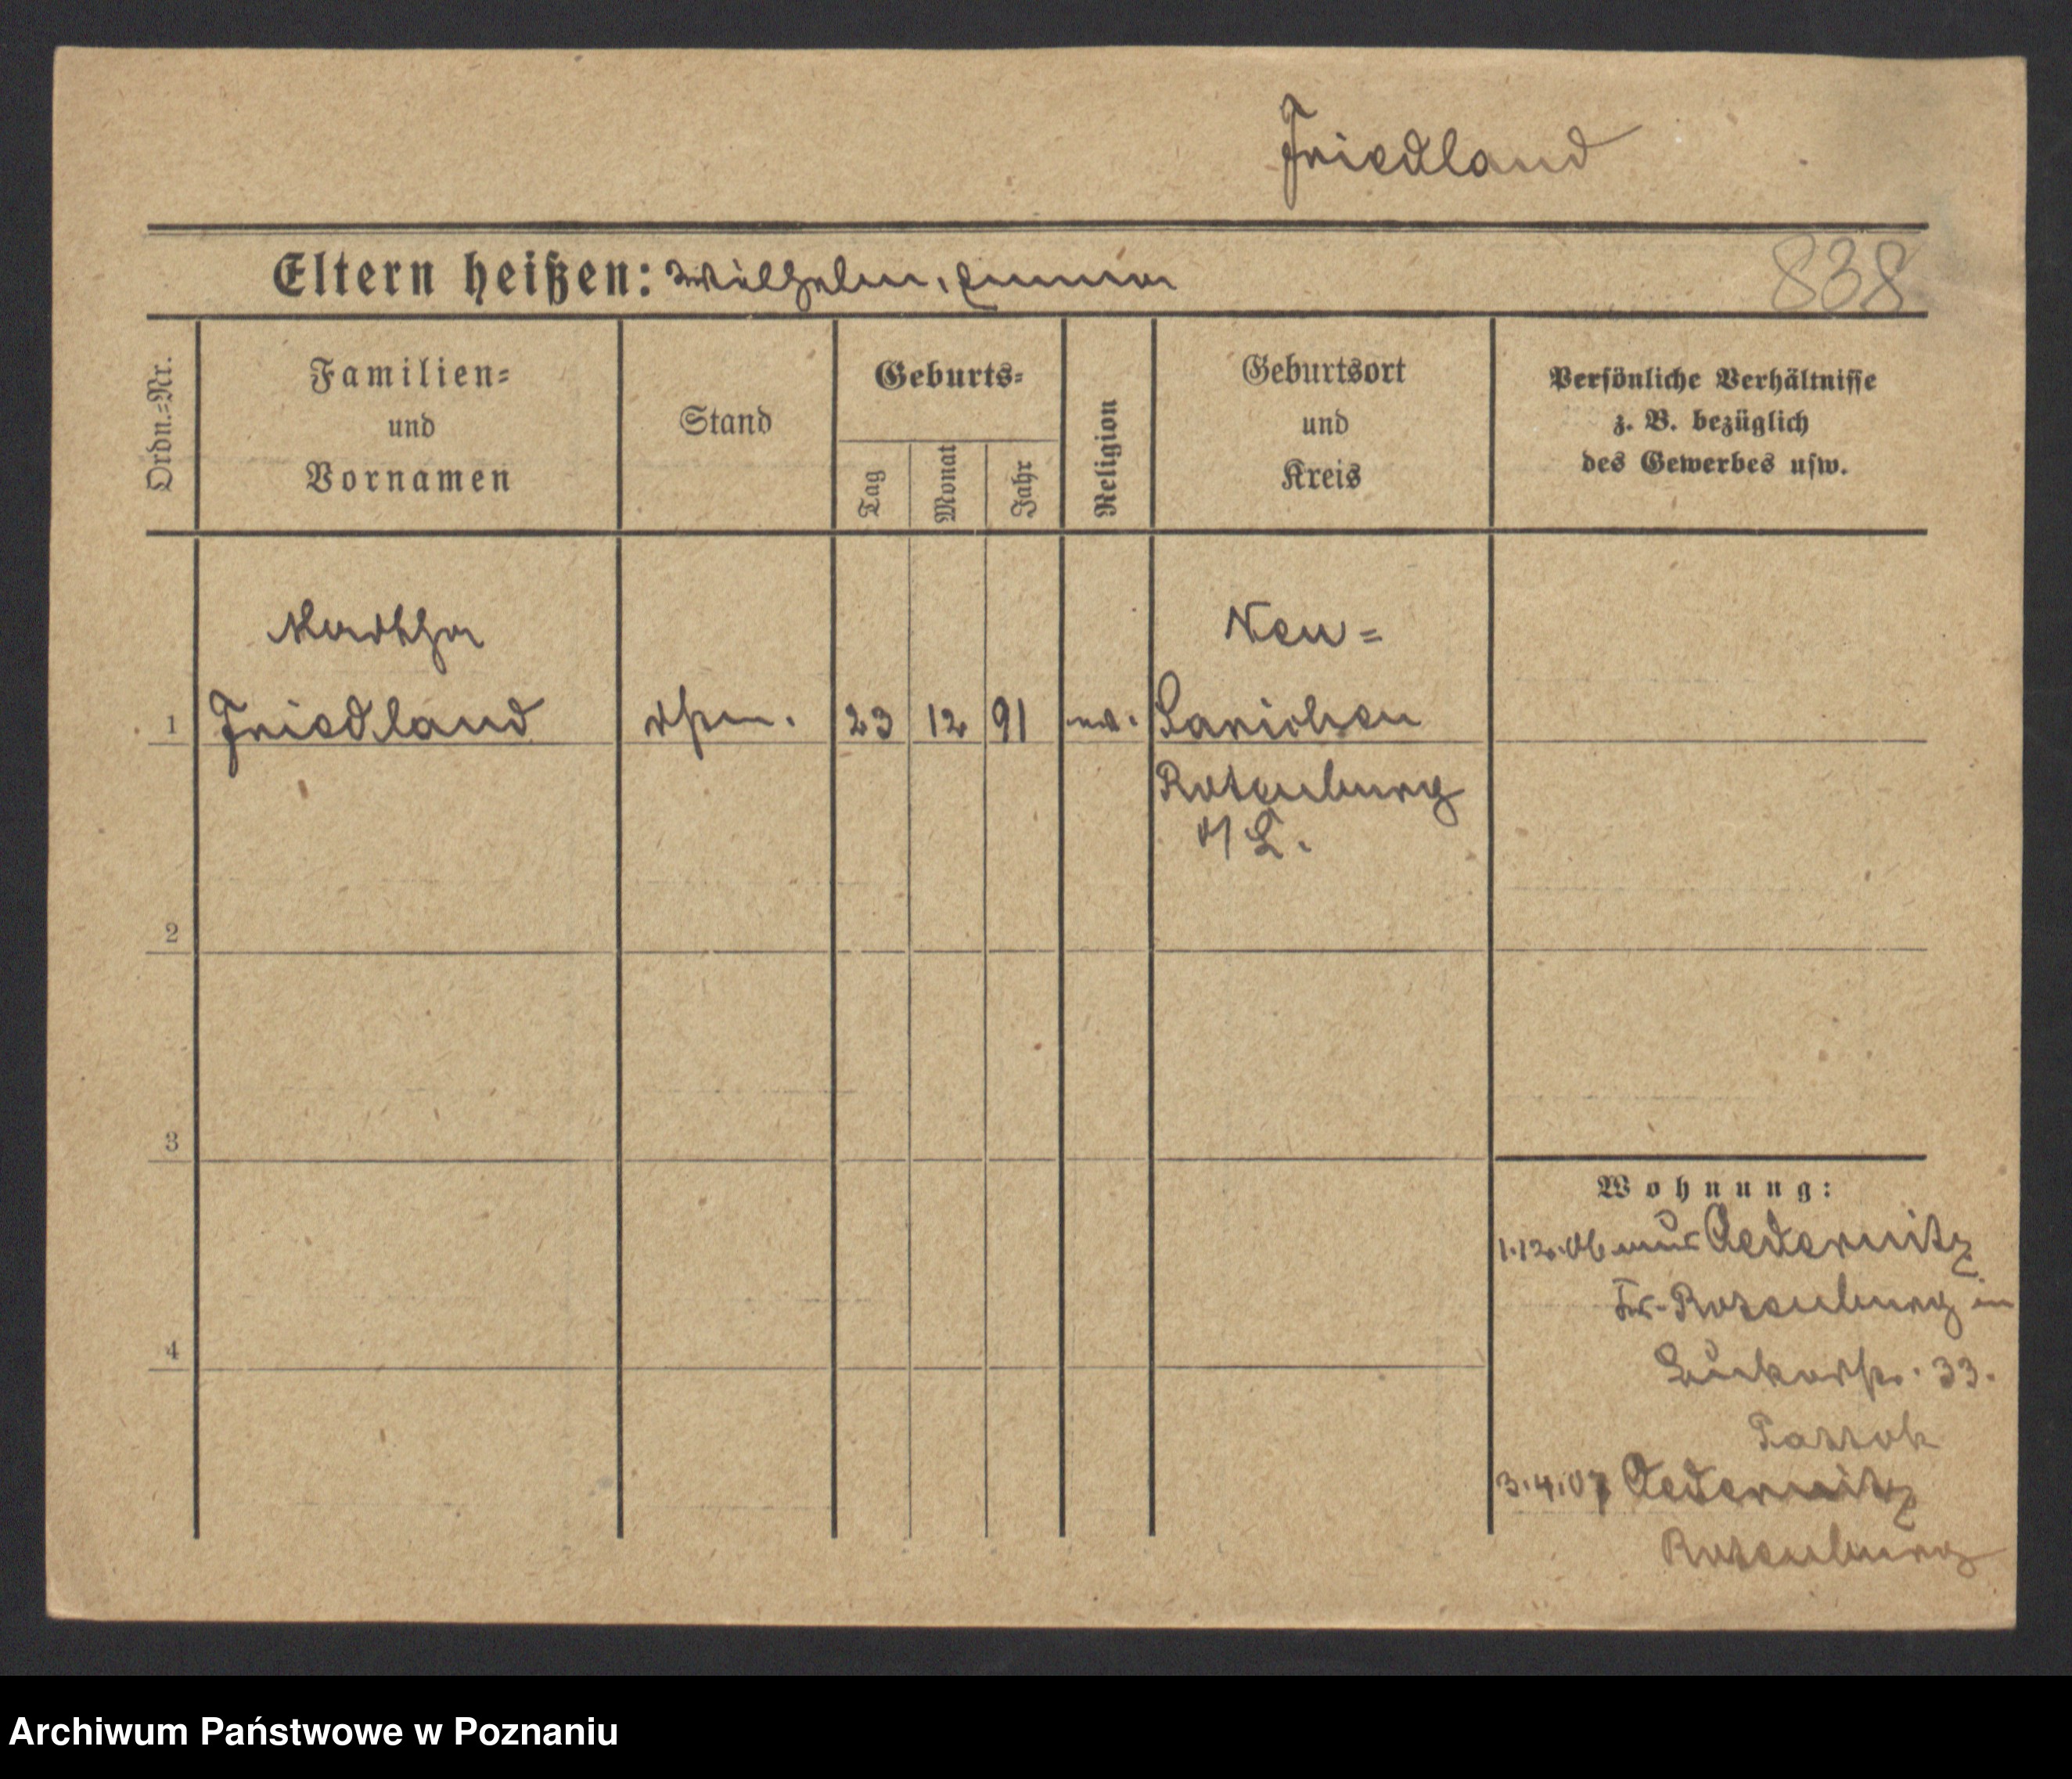 Friedland
Eltern heißen: Wilhelm, Emma
838
Ordn.=Nr.
Familien=
und
Vornamen
Stand
Geburts=
Tag
Monat
Jahr
Religion
Geburtsort
und
Kreis
Persönliche Verhältnisse
z. B. bezüglich
des Gewerbes usw.
Martha
Neu=
1 Friedland 23 12 91 ev.
Rotenburg
O/L.
2
3
4
Wohnung:
1.12.06 aus Oedernitz
Kr. Rotenburg in
33.
3.4.07 Oedernitz
Rotenburg
Archiwum Państwowe w Poznaniu